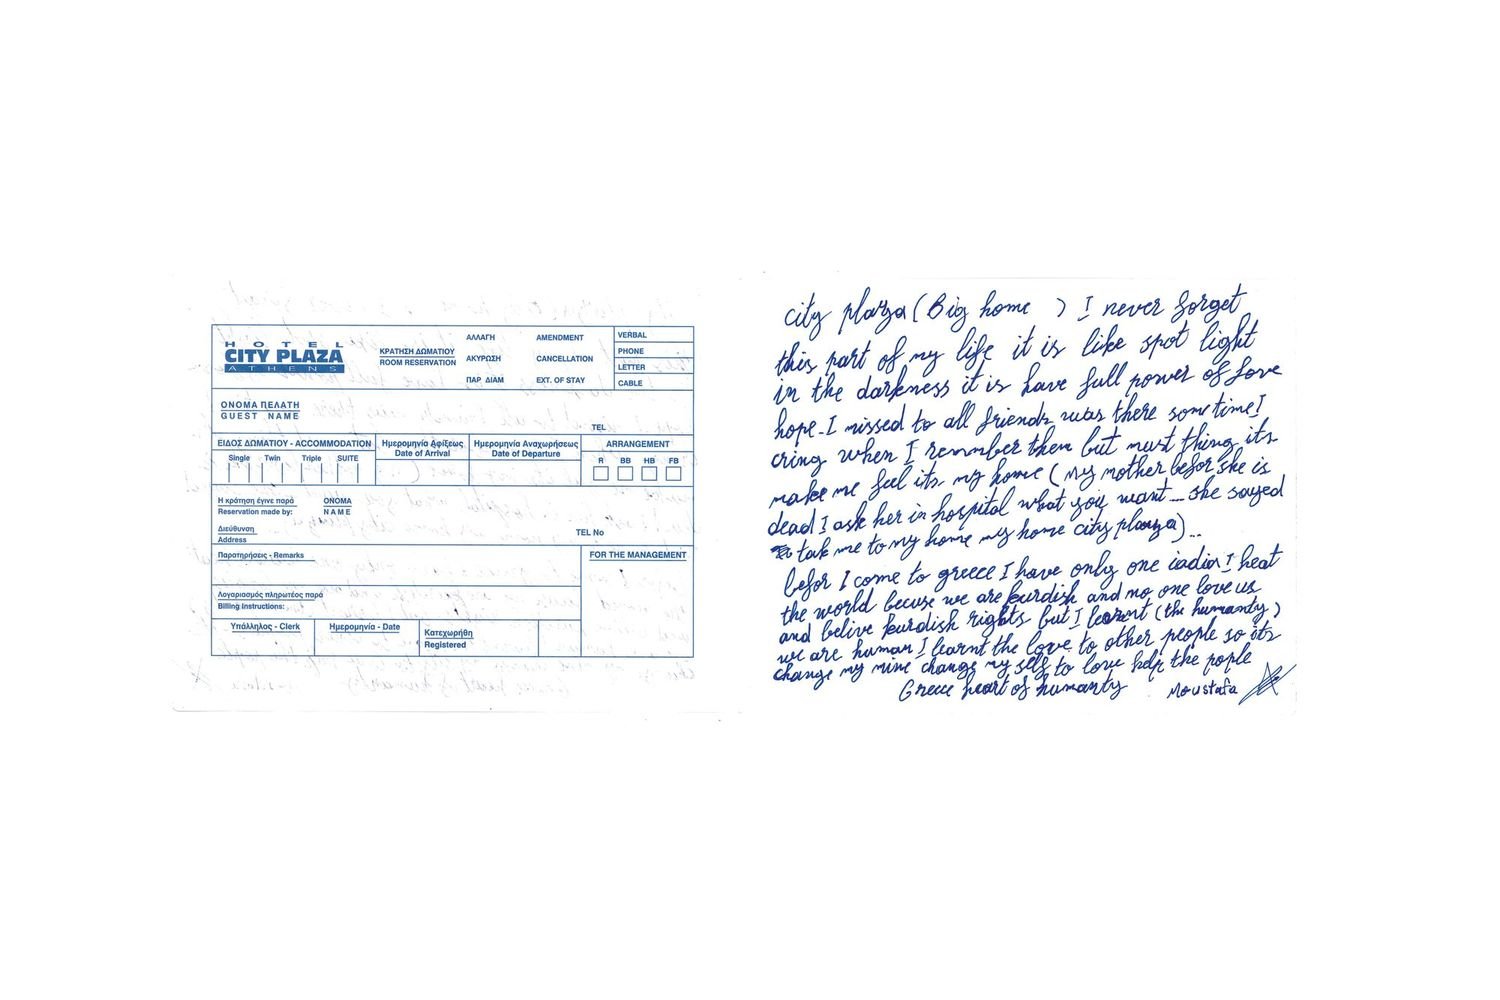 HOTEL
CITY PLAZA
ATHENS
ΚΡΑΤΗΣΗ ΔΩΜΑΤΙΟΥ
ROOM RESERVATION
ΑΛΛΑΓΗ AMENDMENT
ΑΚΥΡΩΣΗ CANCELLATION
ΠΑΡ ΔΙΑΜ EXT. OF STAY
VERBAL
PHONE
LETTER
CABLE
ΟΝΟΜΑ ΠΕΛΑΤΗ
GUEST NAME
TEL
ΕΙΔΟΣ ΔΩΜΑΤΙΟΥ - ACCOMMODATION
Single Twin Triple SUITE
Ημερομηνία Αφίξεως
Date of Arrival
Ημερομηνία Αναχωρήσεως
Date of Departure
ARRANGEMENT
R BB HB FB
Η κράτηση έγινε παρά ΟΝΟΜΑ
Reservation made by: NAME
Διεύθυνση
Address
TEL No
Παρατηρήσεις - Remarks
FOR THE MANAGEMENT
Λογαριασμός πληρωτέος παρά
Billing Instructions:
Υπάλληλος - Clerk
Ημερομηνία - Date
Κατεχωρήθη
Registered
city plaza (Big home ) I never forget
this part of my life it is like spot light
in the darkness it is have full power of love
hope. I missed to all friends was there som time I
cring when I remember them but must thing its
make me feel its my home (my mother befor she is
dead I ask her in hospital what you want ... she sayed
take me to my home my home city plaza)...
befor I come to greece I have only one iadia I heat
the world becuse we are kurdish and no one love us
and belive kurdish rights but I learnt (the humanty)
we are human I learnt the love to other people so its
change my mine change my self to love help the pople
Greece heart of humanty Moustafa